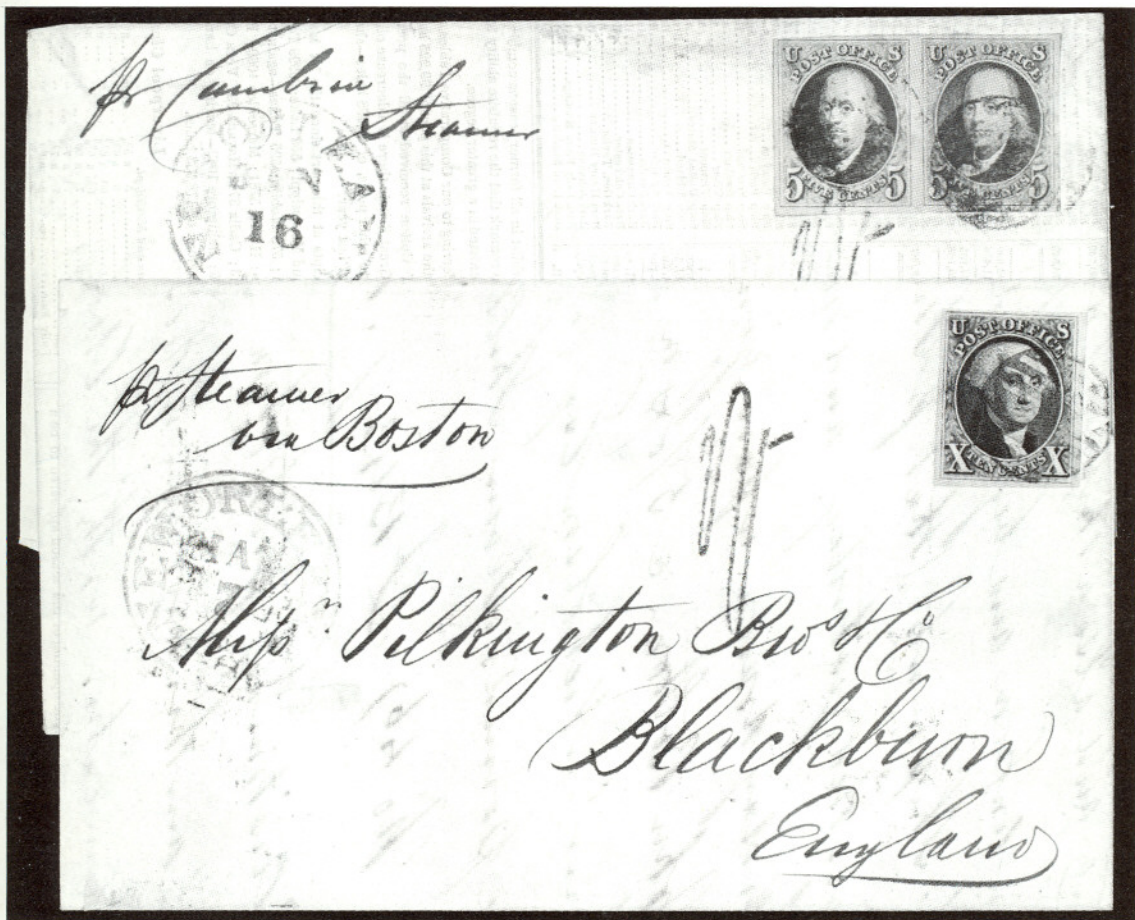 pr Cambria
Steamer
JAN
16
U S
POST OFFICE
5 FIVE CENTS 5
U S
POST OFFICE
5 FIVE CENTS 5
pr Steamer
via Boston
U S
POST OFFICE
X TEN CENTS X
NEW YORK
MAY
Messrs Pilkington Bros & Co
Blackburn
England